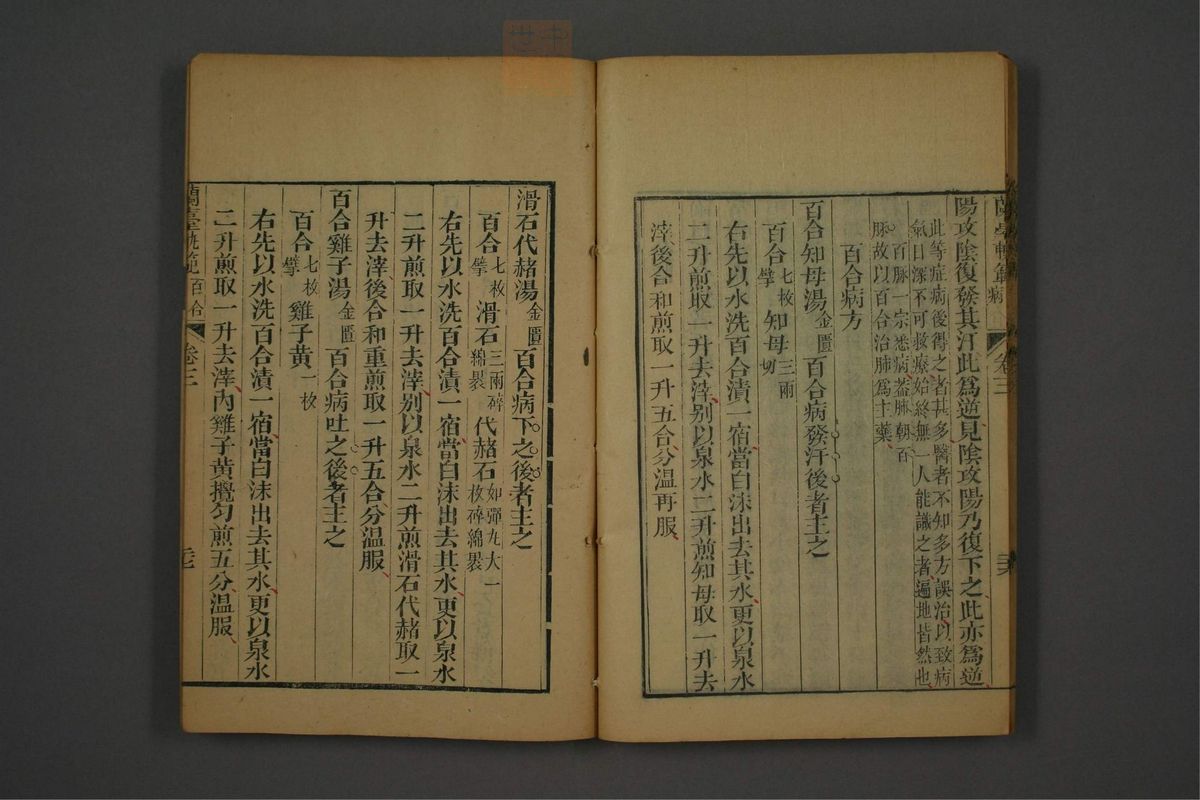 陽攻陰復發其汗此爲逆見陰攻陽乃復下之此亦爲逆
此等症病後得之者甚多醫者不知多方誤治以致病
氣日深不可救療始終無一人能識之者遍地皆然也
百脉一宗悉病葢肺朝百
脉故以百合治肺爲主藥
百合病方
百合知母湯金匱百合病發汗後者主之
百合七枚擘知母三兩切
右先以水洗百合漬一宿當白沫出去其水更以泉水
二升煎取一升去滓别以泉水二升煎知母取一升去
滓後合和煎取一升五合分溫再服
滑石代赭湯金匱百合病下之後者主之
百合七枚擘滑石三兩碎綿裹代赭石如彈丸大一枚碎綿裹
右先以水洗百合漬一宿當白沫出去其水更以泉水
二升煎取一升去滓别以泉水二升煎滑石代赭取一
升去滓後合和重煎取一升五合分溫服
百合雞子湯金匱百合病吐之後者主之
百合七枚擘雞子黃一枚
右先以水洗百合漬一宿當白沫出去其水更以泉水
二升煎取一升去滓內雞子黃攪勻煎五分溫服
蘭臺軌範百合 卷三